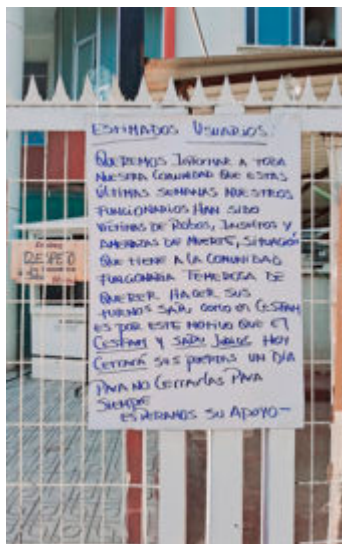 ESTIMADOS USUARIOS:
QUEREMOS INFORMAR A TODA
NUESTRA COMUNIDAD QUE ESTAS
ÚLTIMAS SEMANAS NUESTROS
FUNCIONARIOS HAN SIDO
VICTIMAS DE ROBOS, INSULTOS Y
AMENAZAS DE MUERTE, SITUACIÓN
QUE TIENE A LA COMUNIDAD
FUNCIONARIA TEMEROSA DE
QUERER HACER SUS
TURNOS SAPU COMO EN CESFAM
ES POR ESTE MOTIVO QUE EL
CESFAM Y SAPU JUNTOS HOY
CERRARÁ SUS PUERTAS UN DÍA
PARA NO CERRARLAS PARA
SIEMPRE
ESPERAMOS SU APOYO-